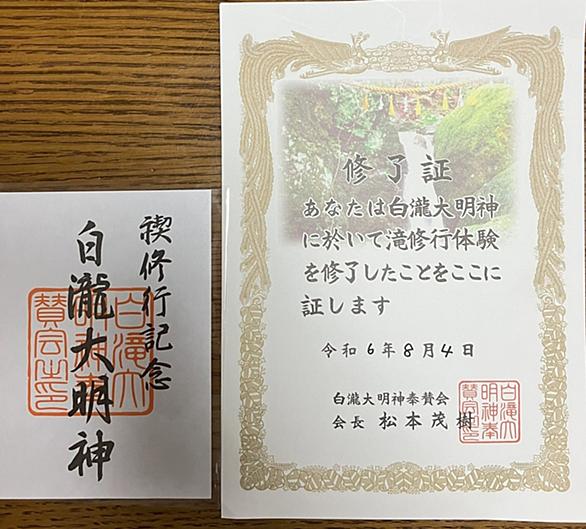 禊修行記念
白瀧大明神
修了証
あなたは白瀧大明神
に於いて滝修行体験
を修了したことをここに
証します
令和6年8月4日
白瀧大明神奉賛会
会長 松本茂樹
白瀧大
明神奉
賛会之印